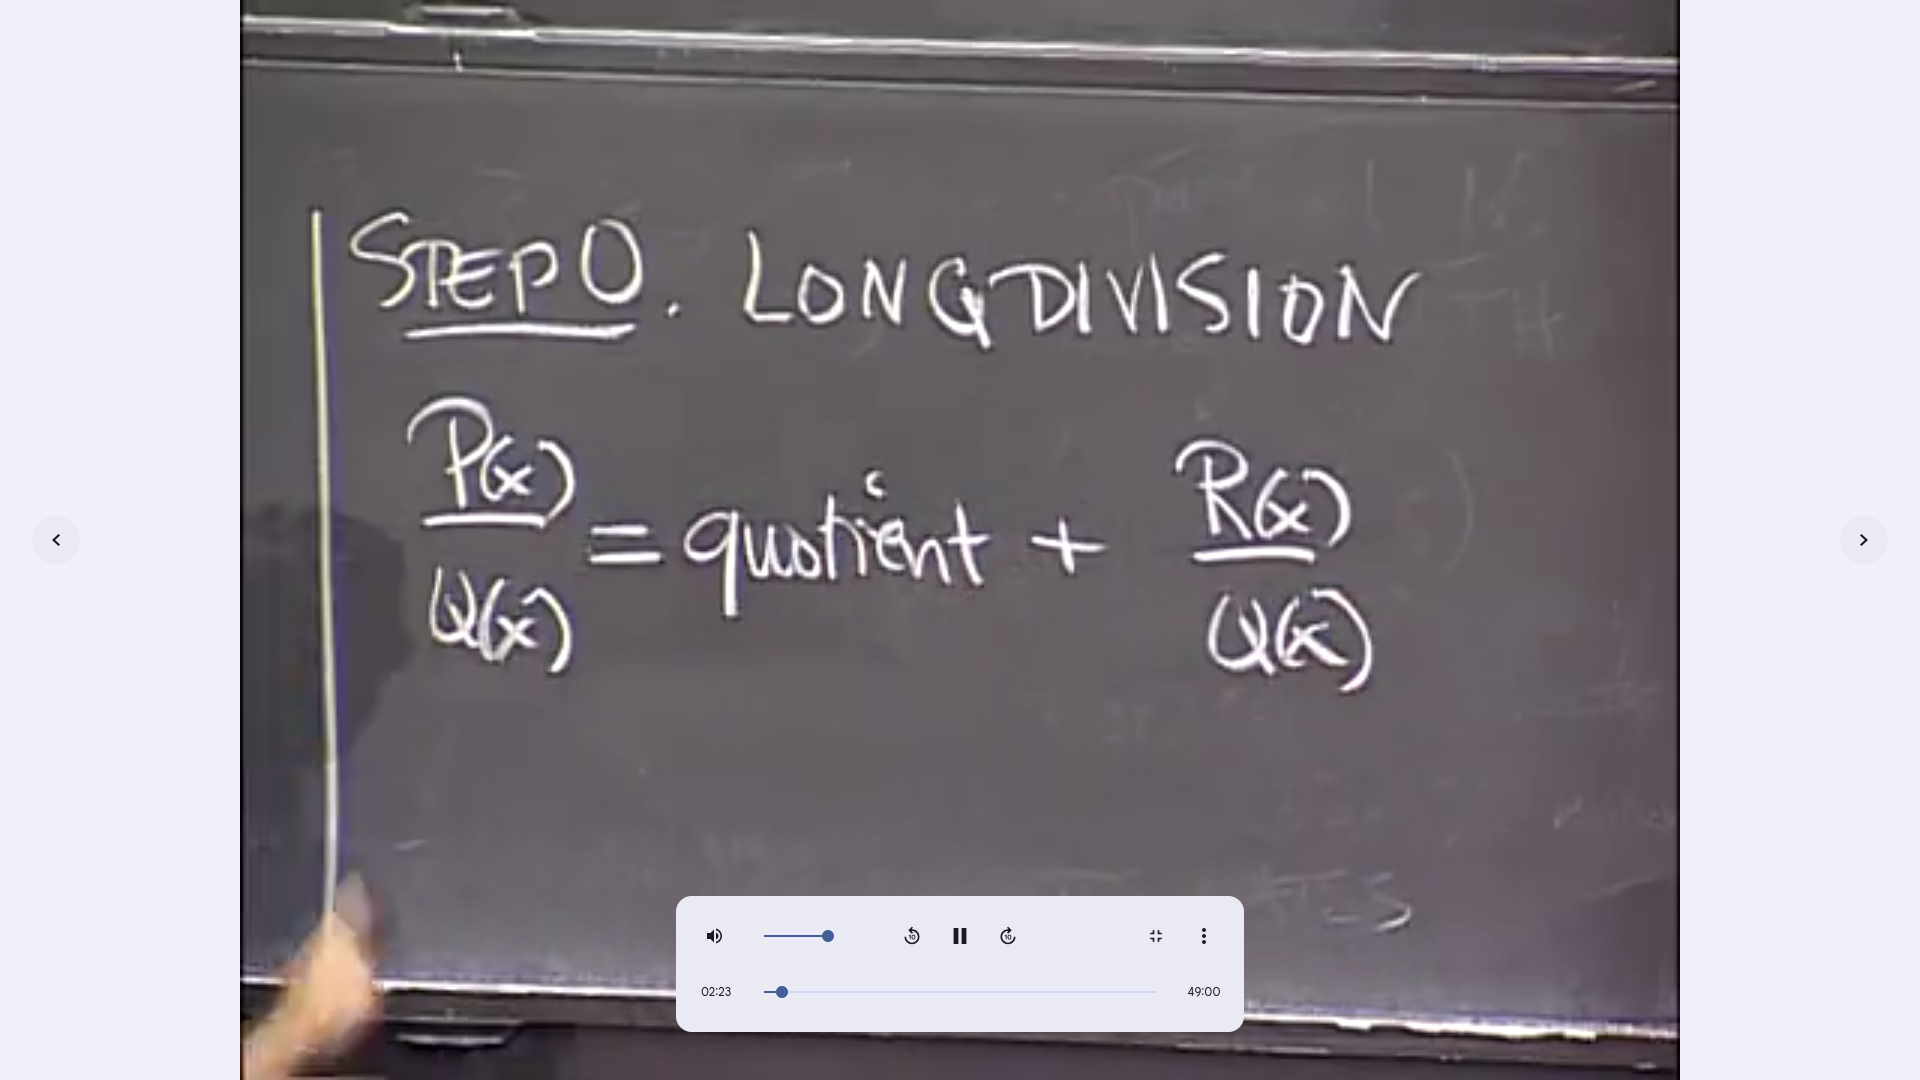 STEP 0. LONG DIVISION
P(x)/Q(x) = quotient + R(x)/Q(x)
02:23 49:00